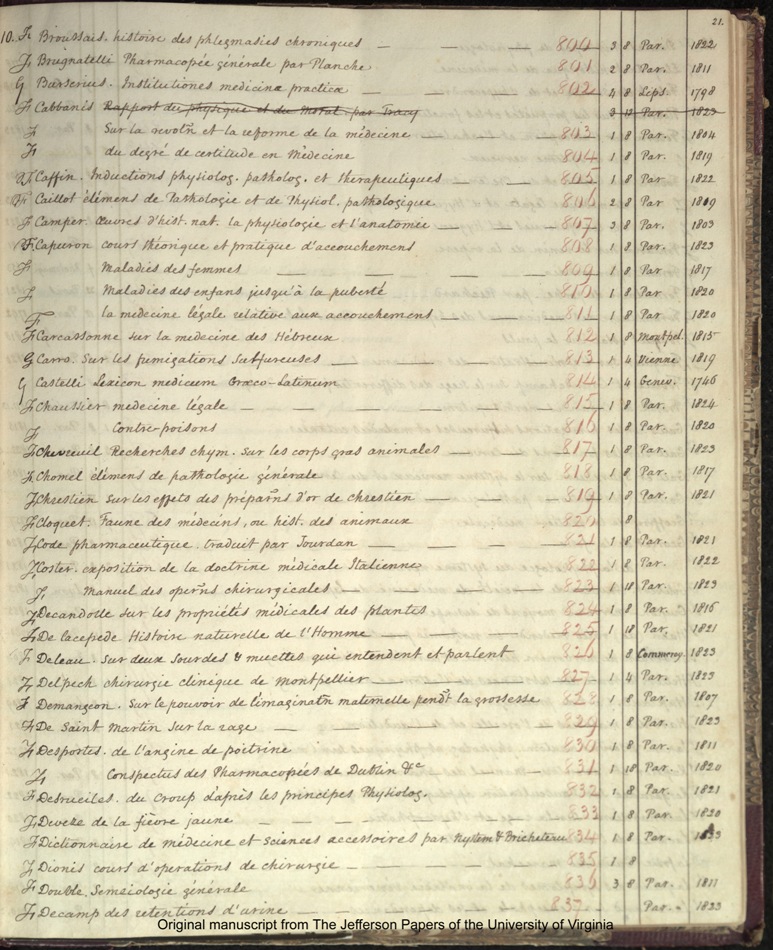 21.
10. F Broussais. histoire des phlegmasies chroniques — — — 800 3 8 Par. 1822
F Brugnatelli Pharmacopée générale par Planche 801 2 8 Par. 1811
G Burserius. Institutiones medicinæ practicæ 802 4 8 Lips. 1798
F Cabbanis Rapport du physique et du Moral. par Tracy 3 12 Par. 1823
F Sur la revoltn et la reforme de la médecine — 803 1 8 Par. 1804
F du degré de certitude en Médecine 804 1 8 Par. 1819
F Caffin. Inductions physiolog. patholog. et therapeutiques — 805 1 8 Par. 1822
F Caillot élémens de Pathologie et de Physiol. pathologique 806 2 8 Par. 1819
F Camper. œuvres d'hist. nat. la physiologie et l'anatomie — 807 3 8 Par. 1803
F Capuron cours théorique et pratique d'accouchemens 808 1 8 Par. 1823
F Maladies des femmes — — — 809 1 8 Par. 1817
F Maladies des enfans jusqu'à la puberté 810 1 8 Par. 1820
F la medecine légale relative aux accouchemens — 811 1 8 Par. 1820
F Carcassonne sur la medecine des Hébreux 812 1 8 Montpel. 1815
G Carro. Sur les fumigations Sulfureuses — — — 813 1 4 Vienne 1819
G Castelli Lexicon medicum Græco-Latinum 814 1 4 Genev. 1746
F Chaussier medecine légale — — — — 815 1 8 Par. 1824
F Contre-poisons 816 1 8 Par. 1820
F Chevreuil Recherches chym. sur les corps gras animales — 817 1 8 Par. 1823
F Chomel élémens de pathologie générale 818 1 8 Par. 1817
F Chrestien sur les effets des préparns d'or de chrestien — 819 1 8 Par. 1821
F Cloquet. Faune des médecins, ou hist. des animaux 820 8
F Code pharmaceutique. traduit par Jourdan — — — 821 1 8 Par. 1821
F Coster. exposition de la doctrine médicale Italienne 822 1 8 Par. 1822
F Manuel des operns chirurgicales — — — 823 1 18 Par. 1823
F Decandolle sur les propriétés médicales des plantes 824 1 8 Par. 1816
F De la cepede Histoire naturelle de l'Homme — — — 825 1 18 Par. 1821
F Deleau. sur deux Sourdes & muettes qui entendent et parlent 826 1 8 Commercy. 1823
F Delpech chirurgie clinique de Montpellier — — — 827 1 4 Par. 1823
F Demangeon. Sur le pouvoir de l'imaginatn maternelle pendt. la grossesse 828 1 8 Par. 1807
F De Saint Martin sur la rage — — — — 829 1 8 Par. 1823
F Desportes. de l'angine de poitrine 830 1 8 Par. 1811
F Conspectus des Pharmacopées de Dublin &c — — 831 1 18 Par. 1820
F Desruelles. du Croup d'après les principes Physiolog. 832 1 8 Par. 1821
F Deveze de la fièvre jaune — — — — 833 1 8 Par. 1820
F Dictionnaire de médecine et sciences accessoires par Nysten & Bricheteau 834 1 8 Par.
F Dionis cours d'operations de chirurgie — — — 835 1 8
F Double. Semeiologie générale 836 3 8 Par. 1811
F Decamp des retentions d'urine — — — 837 Par. 1823
Original manuscript from The Jefferson Papers of the University of Virginia